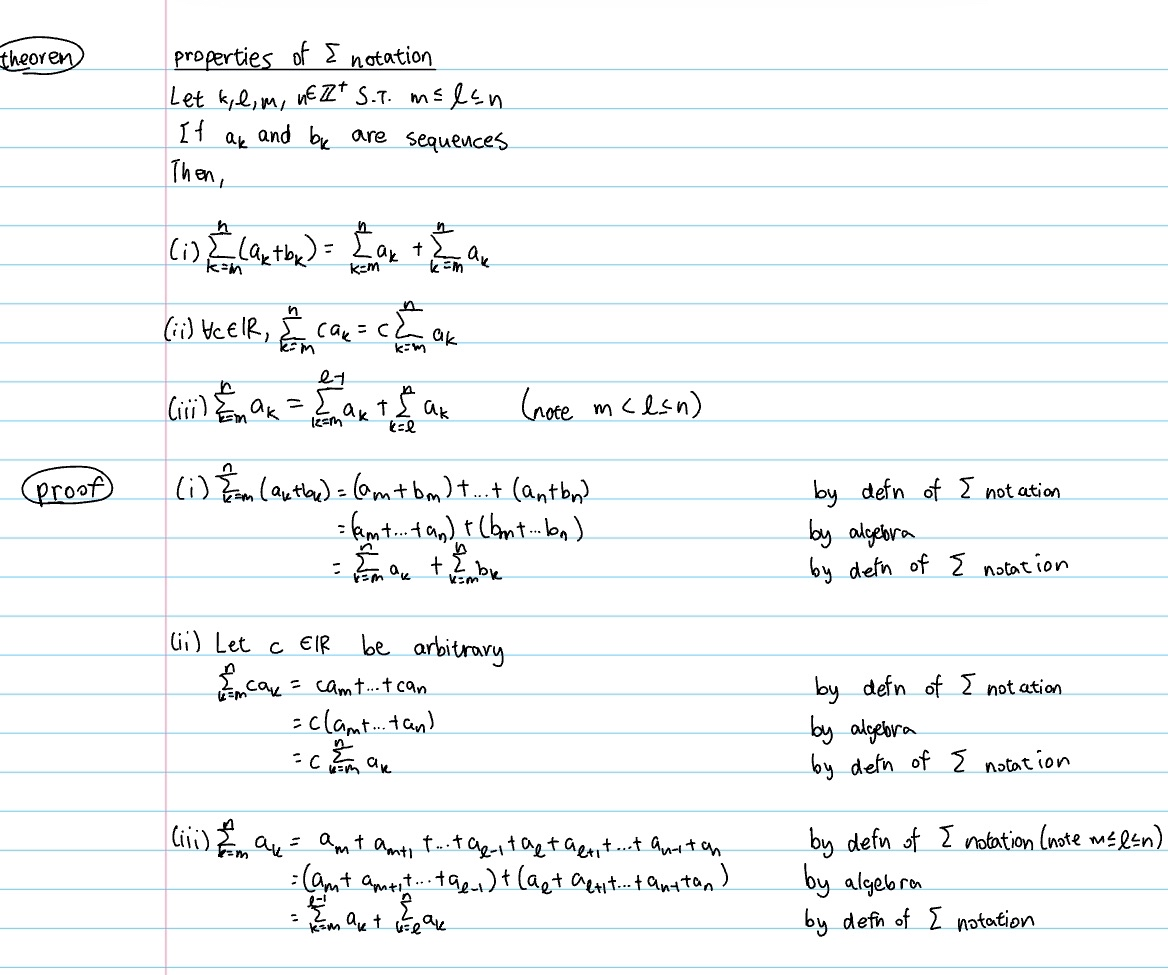 theoren properties of Σ notation
Let k, l, m, n∈ℤ⁺ S.T. m ≤ l ≤ n
If aₖ and bₖ are sequences
Then,
(i) ∑_{k=m}^{n} (aₖ+bₖ) = ∑_{k=m}^{n} aₖ + ∑_{k=m}^{n} aₖ
(ii) ∀c∈ℝ, ∑_{k=m}^{n} c aₖ = c ∑_{k=m}^{n} aₖ
(iii) ∑_{k=m}^{n} aₖ = ∑_{k=m}^{l-1} aₖ + ∑_{k=l}^{n} aₖ (note m < l ≤ n)
proof (i) ∑_{k=m}^{n} (aₖ+bₖ) = (a_m + b_m) + ... + (a_n+b_n) by defn of Σ notation
= (a_m+...+a_n) + (b_m+...b_n) by algebra
= ∑_{k=m}^{n} aₖ + ∑_{k=m}^{n} bₖ by defn of Σ notation
(ii) Let c ∈ℝ be arbitrary
∑_{k=m}^{n} caₖ = ca_m+...+ca_n by defn of Σ notation
= c(a_m+...+a_n) by algebra
= c ∑_{k=m}^{n} aₖ by defn of Σ notation
(iii) ∑_{k=m}^{n} aₖ = a_m + a_{m+1} + ... + a_{l-1} + a_l + a_{l+1} + ... + a_{n-1} + a_n by defn of Σ notation (note m≤l≤n)
= (a_m + a_{m+1} + ... + a_{l-1}) + (a_l + a_{l+1} + ... + a_{n-1} + a_n) by algebra
= ∑_{k=m}^{l-1} aₖ + ∑_{k=l}^{n} aₖ by defn of Σ notation